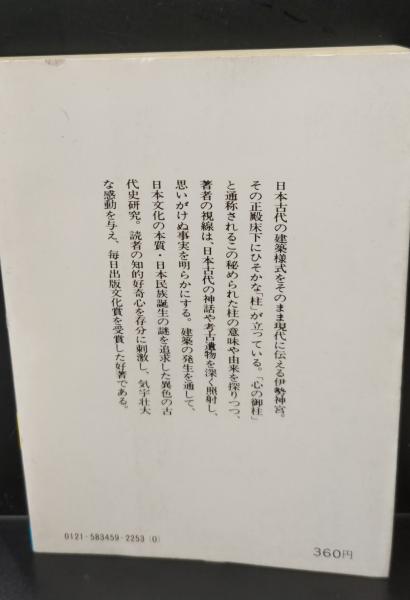 日本古代の建築様式をそのまま現代に伝える伊勢神宮。
その正殿床下にひそかな「柱」が立っている。「心の御柱」
と通称されるこの秘められた柱の意味や由来を探りつつ、
著者の視線は、日本古代の神話や考古遺物を深く照射し、
思いがけぬ事実を明らかにする。建築の発生を通して、
日本文化の本質・日本民族誕生の謎を追求した異色の古
代史研究。読者の知的好奇心を存分に刺激し、気宇壮大
な感動を与え、毎日出版文化賞を受賞した好著である。
0121-583459-2253(0)
360円